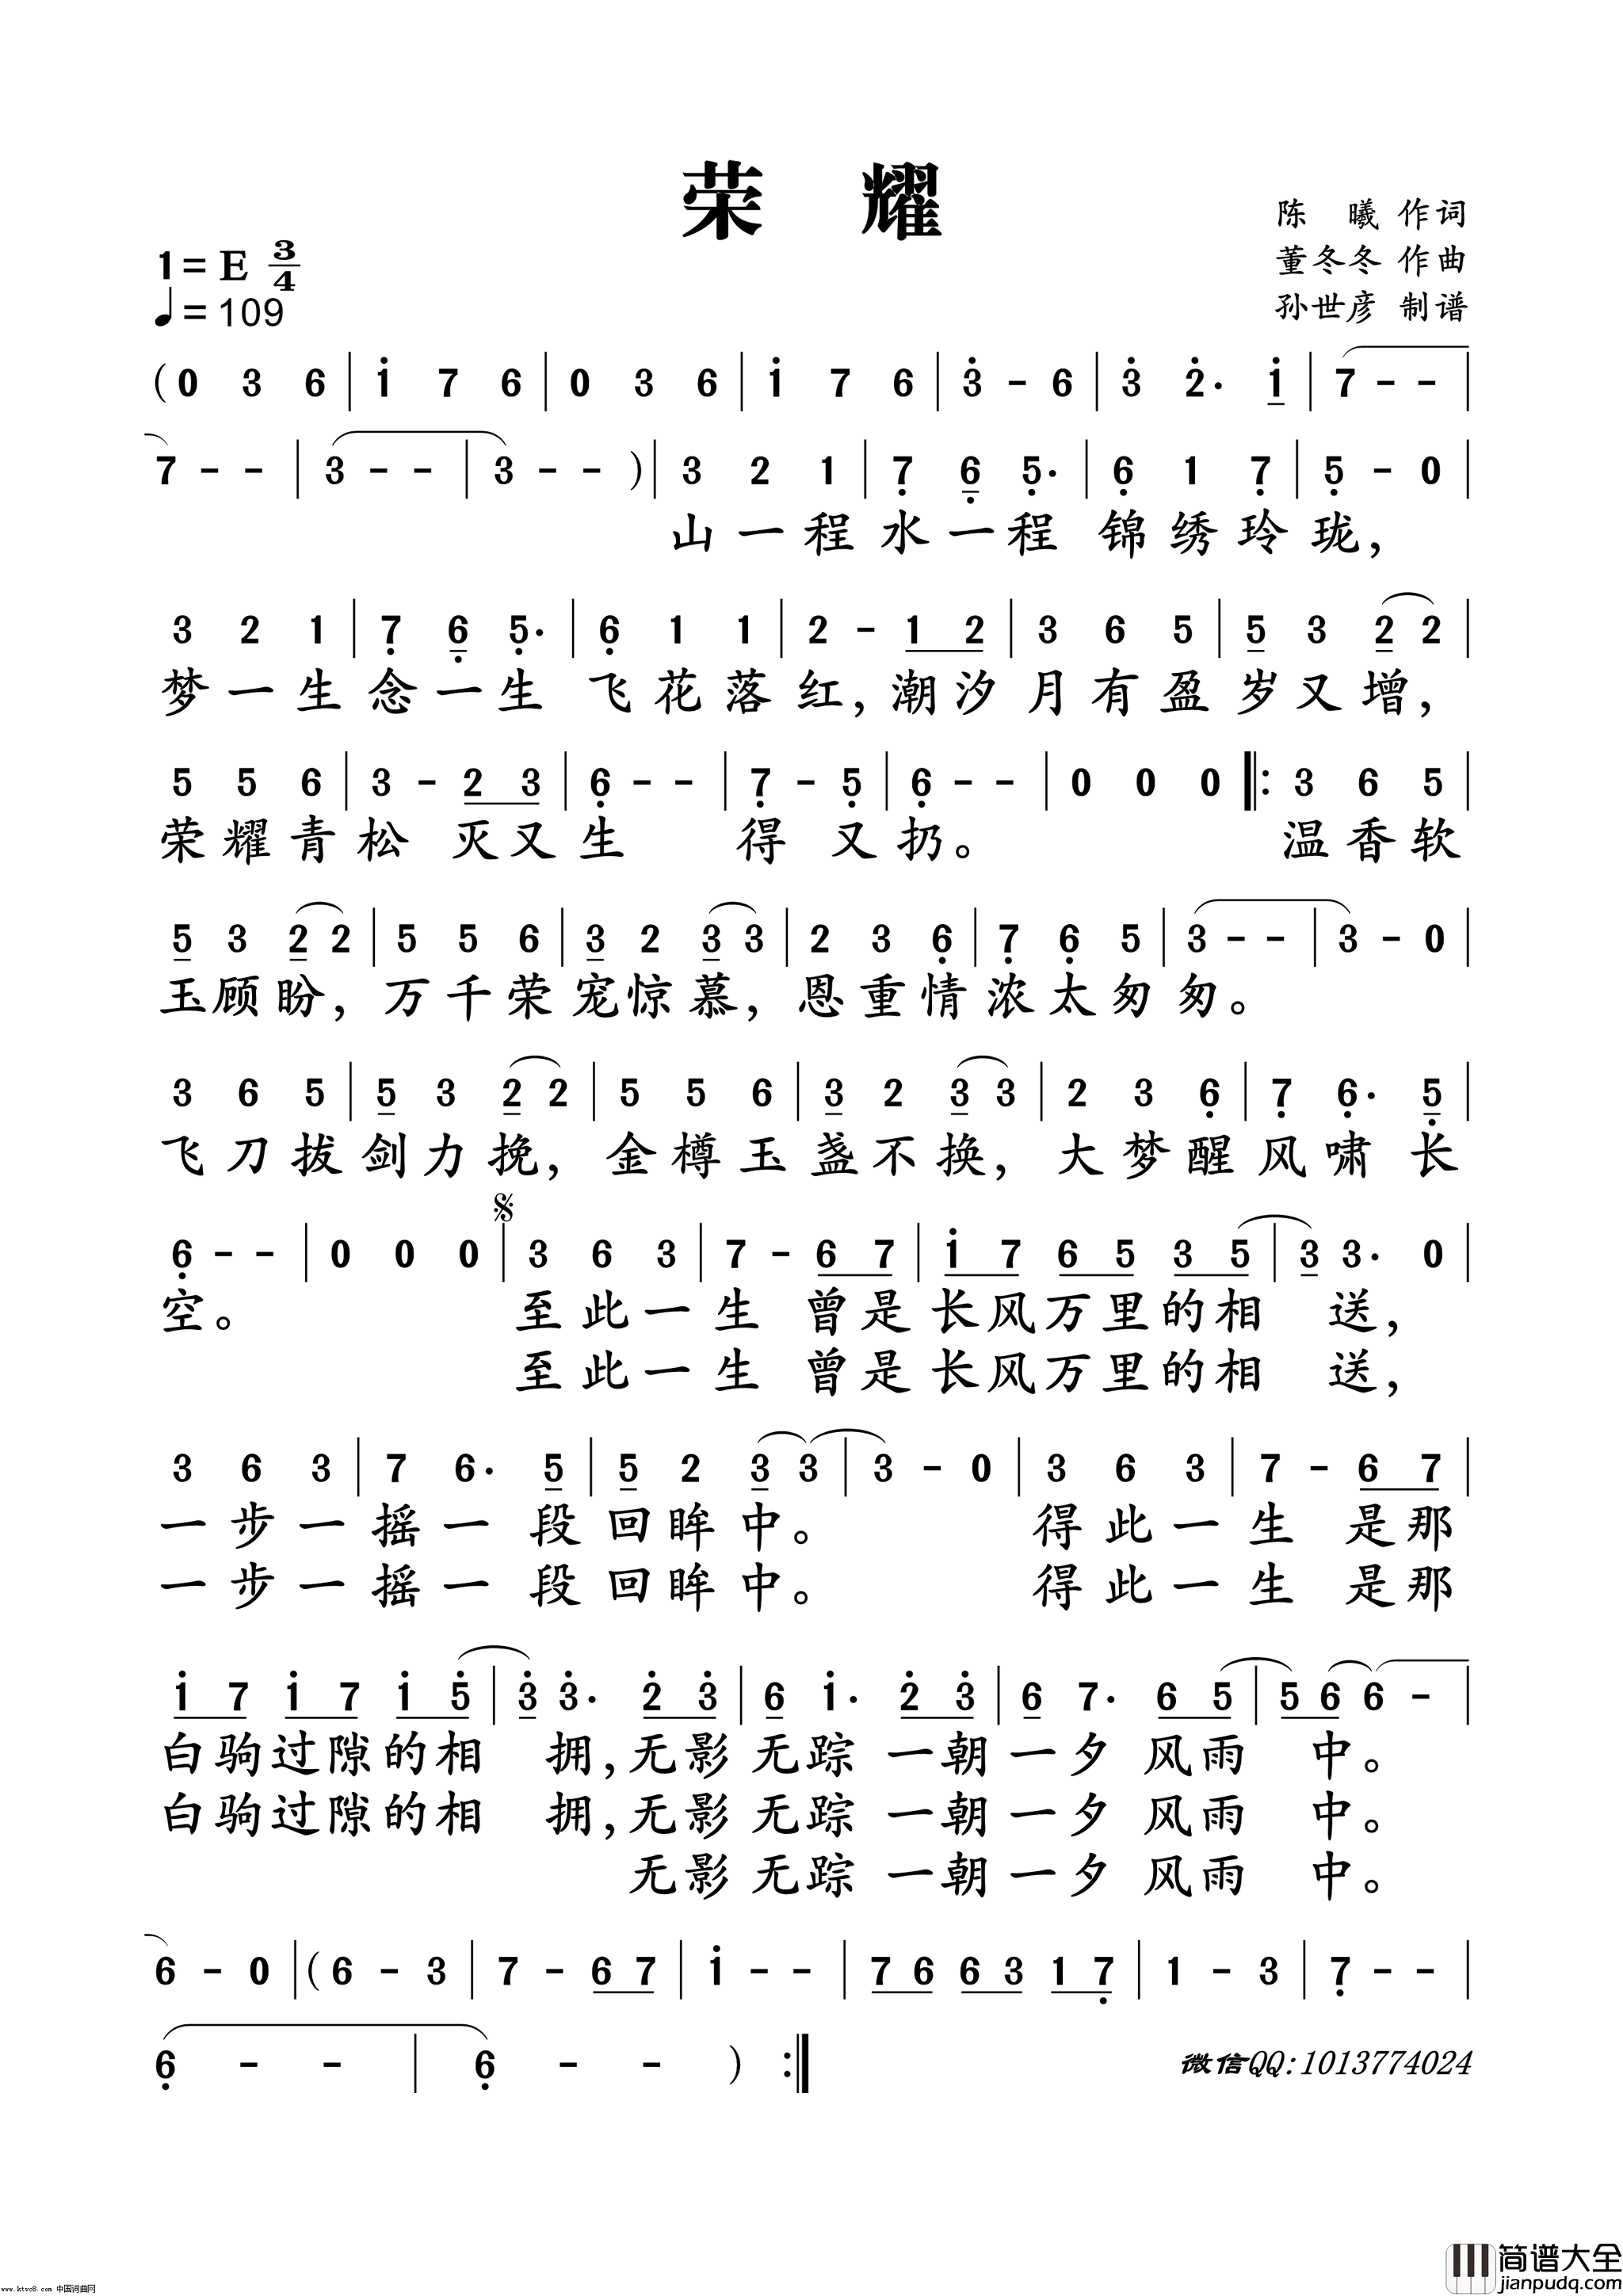 荣 耀
陈 曦 作词
董冬冬 作曲
孙世彦 制谱
1=E 3/4
♩=109
(0 3 6 | i 7 6 | 0 3 6 | i 7 6 | 3 - 6 | 3 2. i | 7 - - |
7 - - | 3 - - | 3 - - ) | 3 2 1 | 7 6 5. | 6 1 7 | 5 - 0 |
山一程水一程 锦绣玲珑,
3 2 1 | 7 6 5. | 6 1 1 | 2 - 1 2 | 3 6 5 | 5 3 2 2 |
梦一生念一生 飞花落红,潮汐月有盈岁又增,
5 5 6 | 3 - 2 3 | 6 - - | 7 - 5 | 6 - - | 0 0 0 |: 3 6 5 |
荣耀青松 灭又生 得又扔。 温香软
5 3 2 2 | 5 5 6 | 3 2 3 3 | 2 3 6 | 7 6 5 | 3 - - | 3 - 0 |
玉顾盼,万千荣宠惊慕,恩重情浓太匆匆。
3 6 5 | 5 3 2 2 | 5 5 6 | 3 2 3 3 | 2 3 6 | 7 6. 5 |
飞刀拔剑力挽,金樽玉盏不换,大梦醒风啸长
6 - - | 0 0 0 | 3 6 3 | 7 - 6 7 | i 7 6 5 3 5 | 3 3. 0 |
空。 至此一生 曾是长风万里的相 送,
至此一生 曾是长风万里的相 送,
3 6 3 | 7 6. 5 | 5 2 3 3 | 3 - 0 | 3 6 3 | 7 - 6 7 |
一步一摇一段回眸中。 得此一生 是那
一步一摇一段回眸中。 得此一生 是那
i 7 i 7 i 5 | 3 3. 2 3 | 6 i. 2 3 | 6 7. 6 5 | 5 6 6 - |
白驹过隙的相 拥,无影无踪 一朝一夕 风雨 中。
白驹过隙的相 拥,无影无踪 一朝一夕 风雨 中。
无影无踪 一朝一夕 风雨 中。
6 - 0 | (6 - 3 | 7 - 6 7 | i - - | 7 6 6 3 1 7 | 1 - 3 | 7 - - |
6 - - | 6 - - ) :|
微信QQ:1013774024
www.ktvc8.com 中国词曲网
简谱大全
jianpudq.com